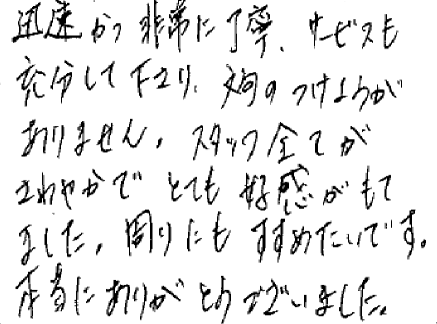 迅速かつ非常に丁寧、サービスも
充分して下さり、文句のつけようが
ありません。スタッフ全てが
さわやかでとても好感がもて
ました。周りにもすすめたいです。
本当にありがとうございました。